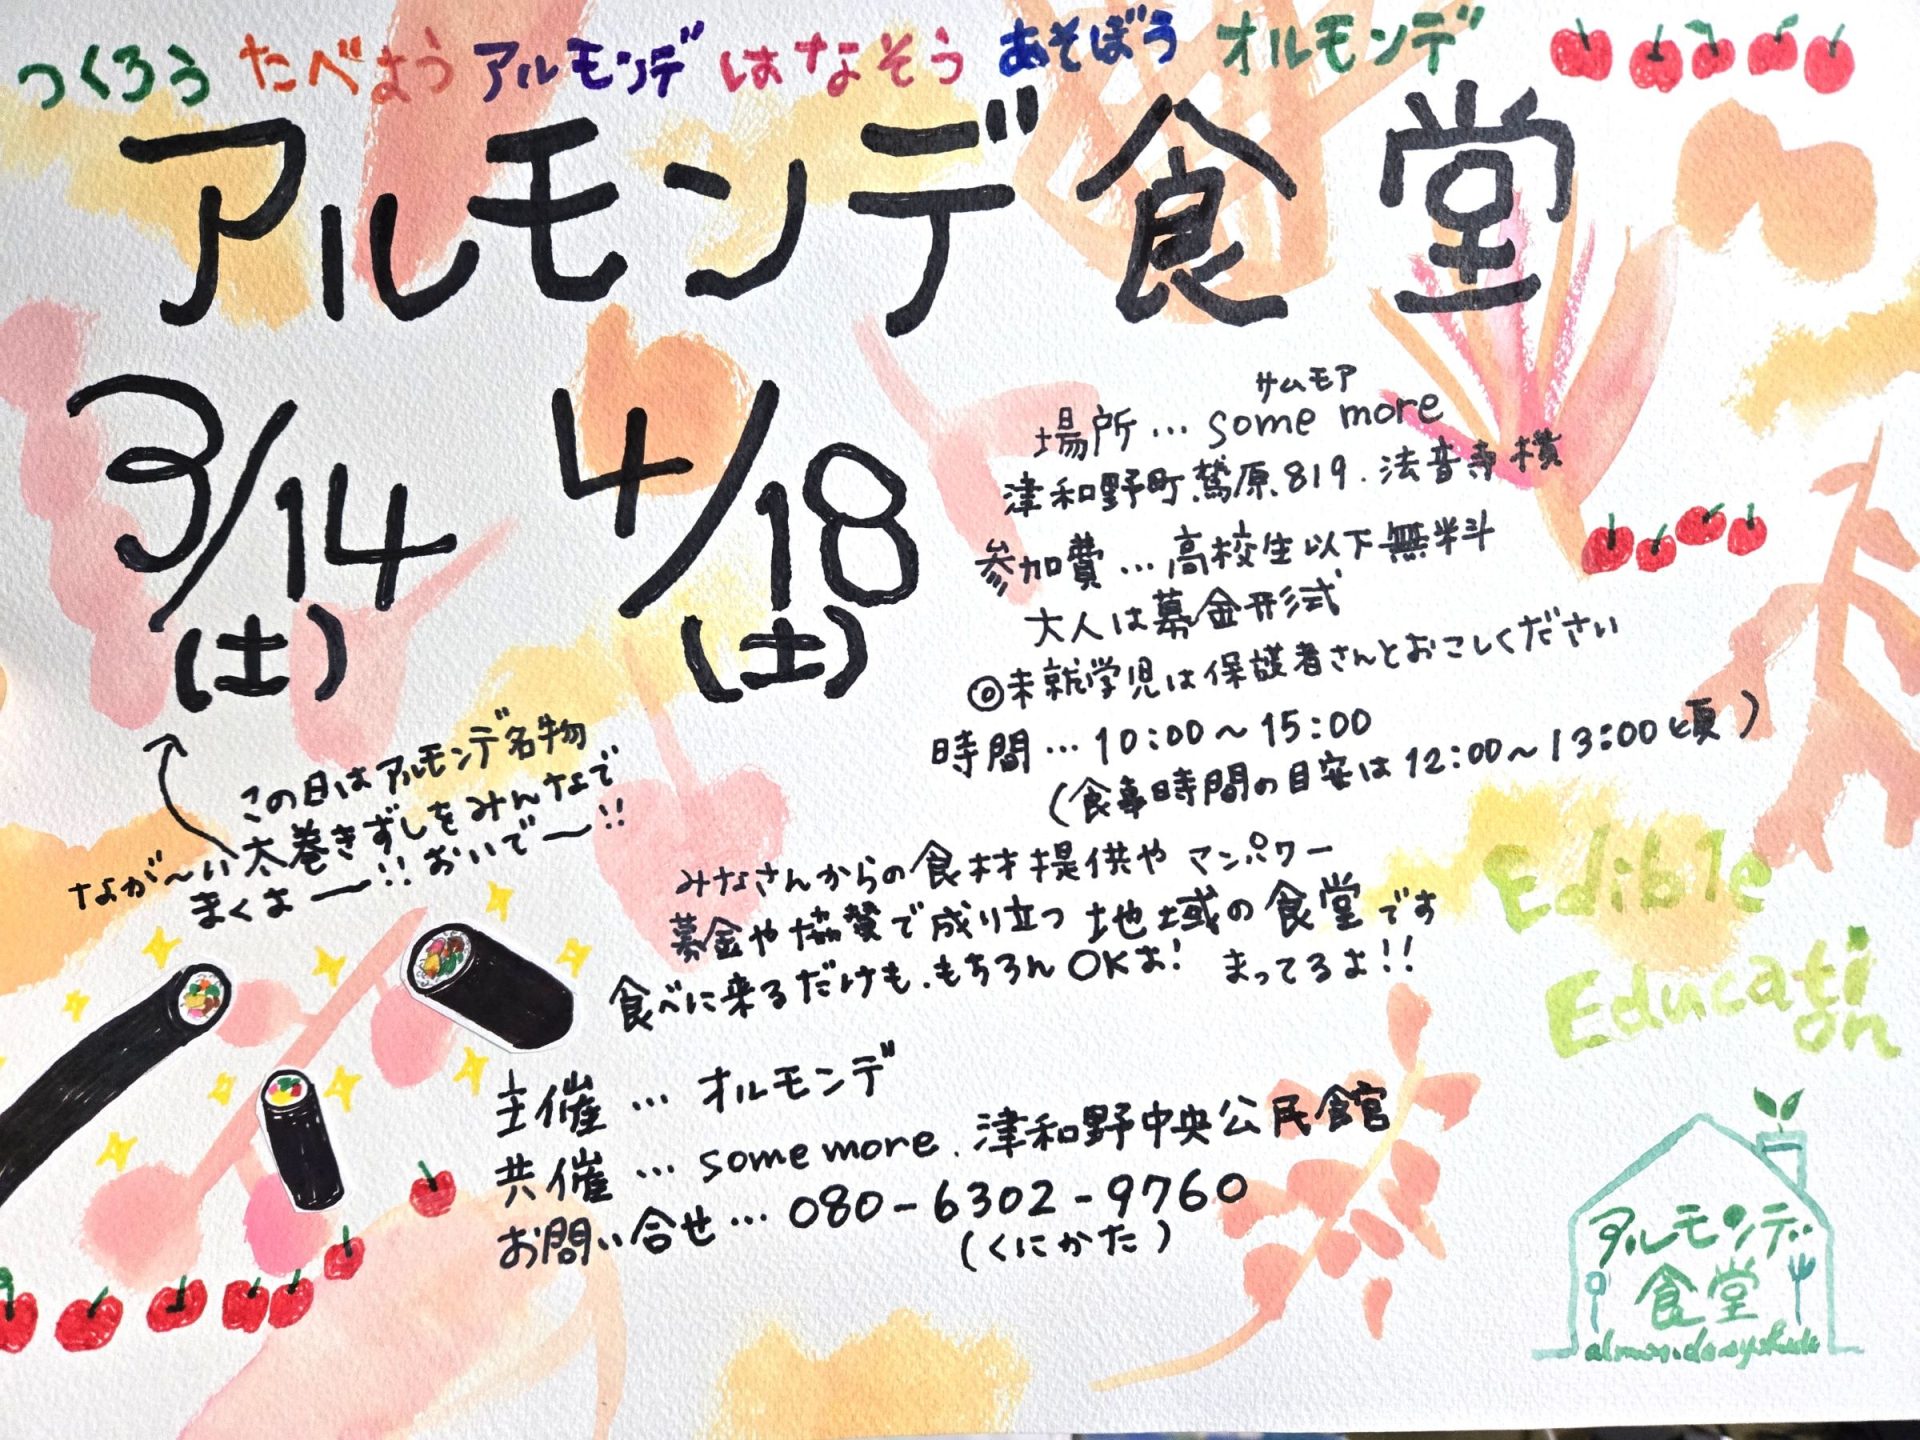 つくろう たべよう アルモンデ はなそう あそぼう オルモンデ
アルモンデ食堂
3/14
(土)
4/18
(土)
サムモア
場所…some more
津和野町.鷲原.819.法音寺横
参加費…高校生以下無料
大人は募金形式
◎未就学児は保護者さんとおこしください
時間…10:00〜15:00
(食事時間の目安は12:00〜13:00頃)
この日はアルモンデ名物
なが〜い太巻きずしをみんなで
まくよー!!おいでー!!
みなさんからの食材提供やマンパワー
募金や協賛で成り立つ地域の食堂です
食べに来るだけも.もちろんOKよ! まってるよ!!
主催…オルモンデ
共催…some more.津和野中央公民館
お問い合せ…080-6302-9760
(くにかた)
Edible
Education
アルモンデ
食堂